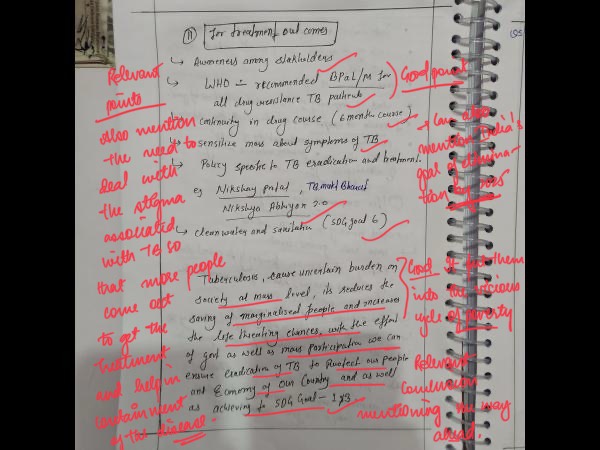 (11) for treatment out comes
→ Awareness among stakholders
→ WHO - recommended BPaL/M for
all drug resistance TB patients
→ continuity in drug course (6 month course)
→ sensitive mass about symptoms of TB
→ Policy specific to TB eradication and treatment
eg Nikshay portal, TB mukt Bharat
Nikshya Abhiyan 2.0
→ clean water and sanitation (SDG goal 6)
Tuberculosis, cause uncertain burden on
society at mass level, its reduces the
saving of marginalised people and increases
the life threating chances, with the effort
of govt as well as mass participation we can
ensure eradication of TB to Protect our people
and Economy of our Country and as well
as achieving to SDG Goal - 1,3
Relevant
points
also mention
the need to
deal with
the stigma
associated
with TB so
that more people
come out
to get the
treatment
and help in
containment
of the disease.
Good point
+ Can also
mention India's
goal of elimina-
tion by 2025
Good. It put them
into the vicious
cycle of poverty
Relevant
conclusion
mentioning the way
ahead.